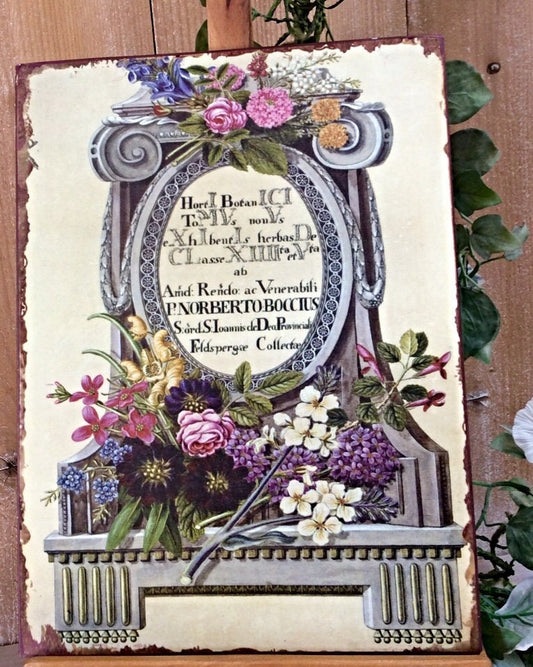 HortI BotanICI
ToMVs nonVs
eXhIbentIs herbas De
CLasse XIIIIta et Vta
ab
Amd: Rendo: ac Venerabili
P. NORBERTO BOCCIUS
S: ord. S. Ioannis de Deo, Provincial
Feldspergæ Collectæ